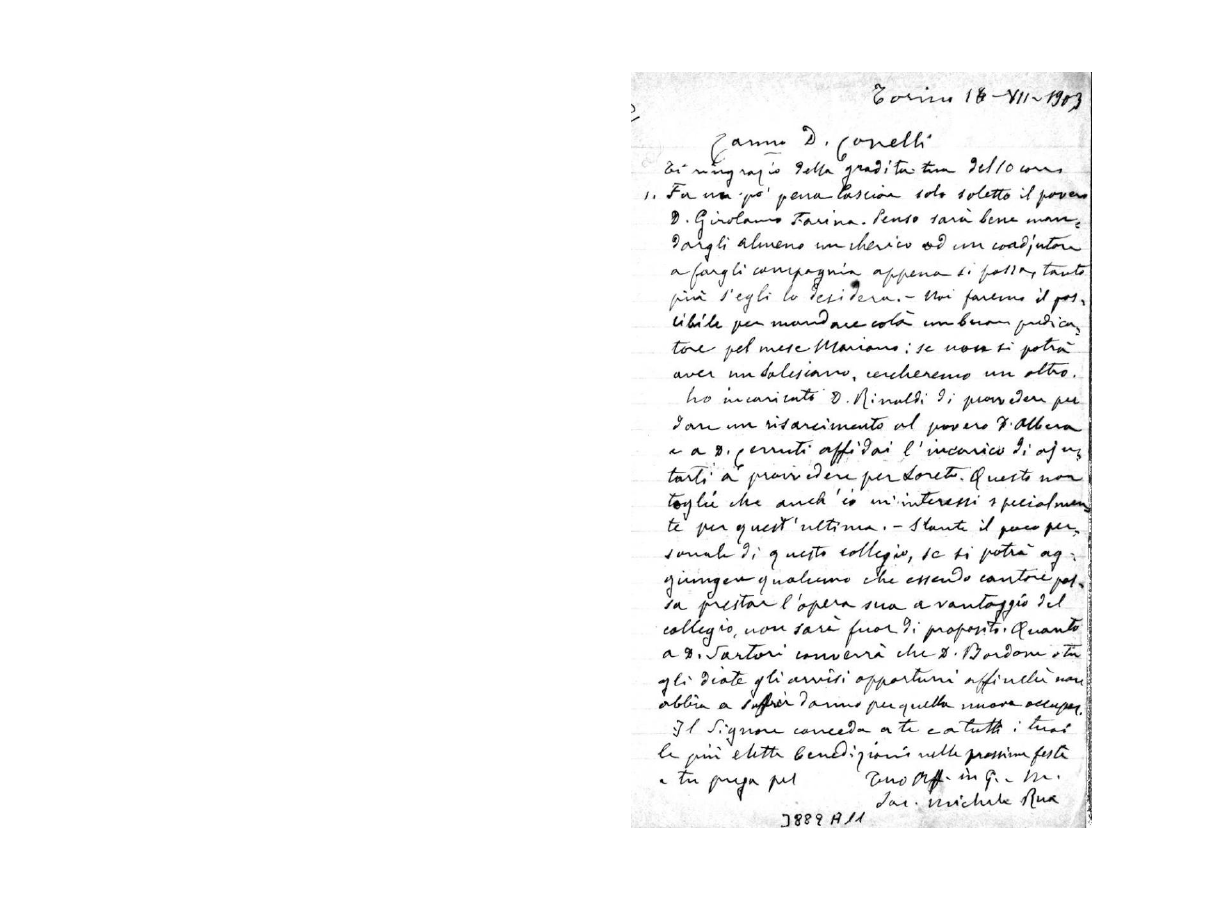 Torino 18-VII-1903
Carmo D. Conelli
Ti ringrazio della gradita tua del 10 corr.
1. Fa un po' pena lasciar solo soletto il povero
D. Girolamo Farina. Penso sarà bene man-
dargli almeno un cherico od un coadjutore
a fargli compagnia appena si possa, tanto
più s'egli lo desidera. - Noi faremo il pos-
sibile per mandare colà un buon predica-
tore pel mese Mariano: se non si potrà
aver un Salesiano, cercheremo un altro.
Ho incaricato D. Rinaldi di provvedere per
dare un risarcimento al povero D. Albera
e a D. Cerruti affidai l'incarico di aju-
tarti a provvedere per Loreto. Questo non
toglie che anch'io m'interessi specialmen-
te per quest'ultima. - Stante il poco per-
sonale di questo collegio, se si potrà ag-
giungere qualcuno che essendo cantore pos-
sa prestar l'opera sua a vantaggio del
collegio, non sarà fuor di proposito. Quanto
a D. Sartori converrà che D. Bordone o tu
gli diate gli avvisi opportuni affinchè non
abbia a soffrir danno per quella nuova occupaz.
Il Signore conceda a te e a tutti i tuoi
le più elette benedizioni nelle prossime feste
e tu prega pel Tuo Aff. in G. e M.
Sac. Michele Rua
3889 A11